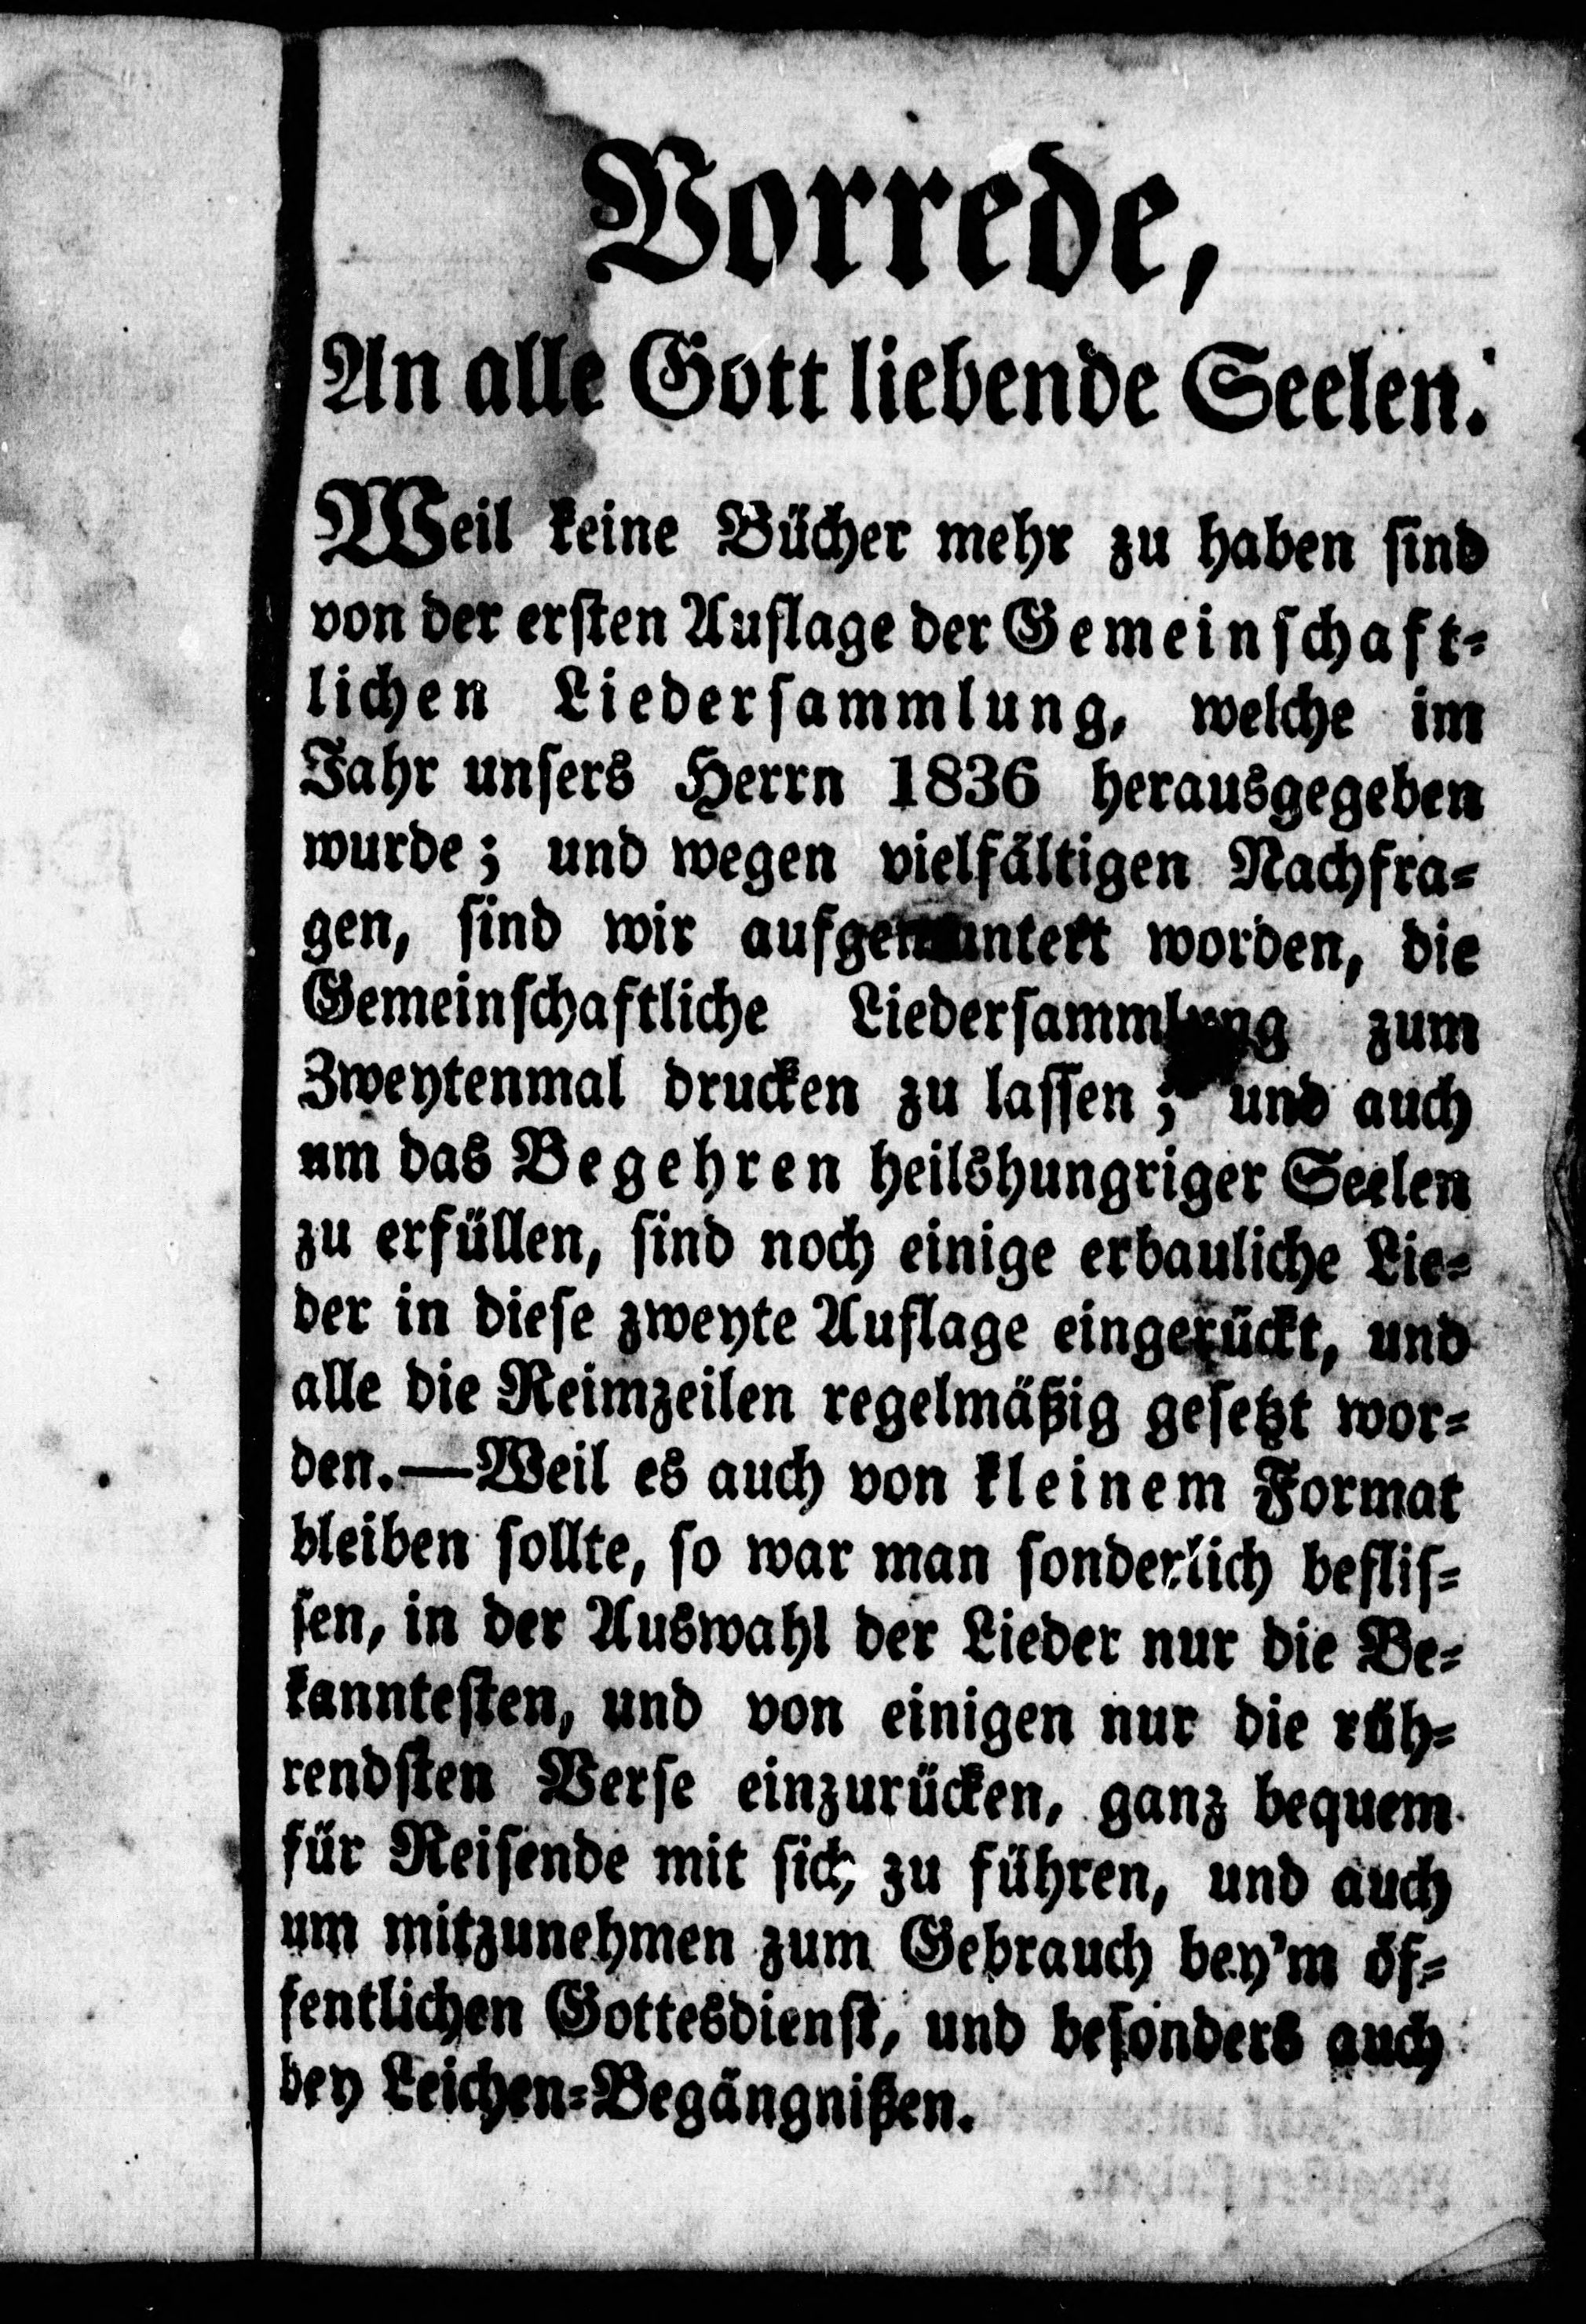 Vorrede,
An alle Gott liebende Seelen.
Weil keine Bücher mehr zu haben sind
von der ersten Auflage der Gemeinschaft-
lichen Liedersammlung, welche im
Jahr unsers Herrn 1836 herausgegeben
wurde; und wegen vielfältigen Nachfra-
gen, sind wir aufgemuntert worden, die
Gemeinschaftliche Liedersammlung zum
Zweytenmal drucken zu lassen; und auch
um das Begehren heilshungriger Seelen
zu erfüllen, sind noch einige erbauliche Lie-
der in diese zweyte Auflage eingerückt, und
alle die Reimzeilen regelmäßig gesetzt wor-
den.—Weil es auch von kleinem Format
bleiben sollte, so war man sonderlich beflis-
sen, in der Auswahl der Lieder nur die Be-
kanntesten, und von einigen nur die rüh-
rendsten Verse einzurücken, ganz bequem
für Reisende mit sich zu führen, und auch
um mitzunehmen zum Gebrauch bey'm öf-
fentlichen Gottesdienst, und besonders auch
bey Leichen-Begängnißen.